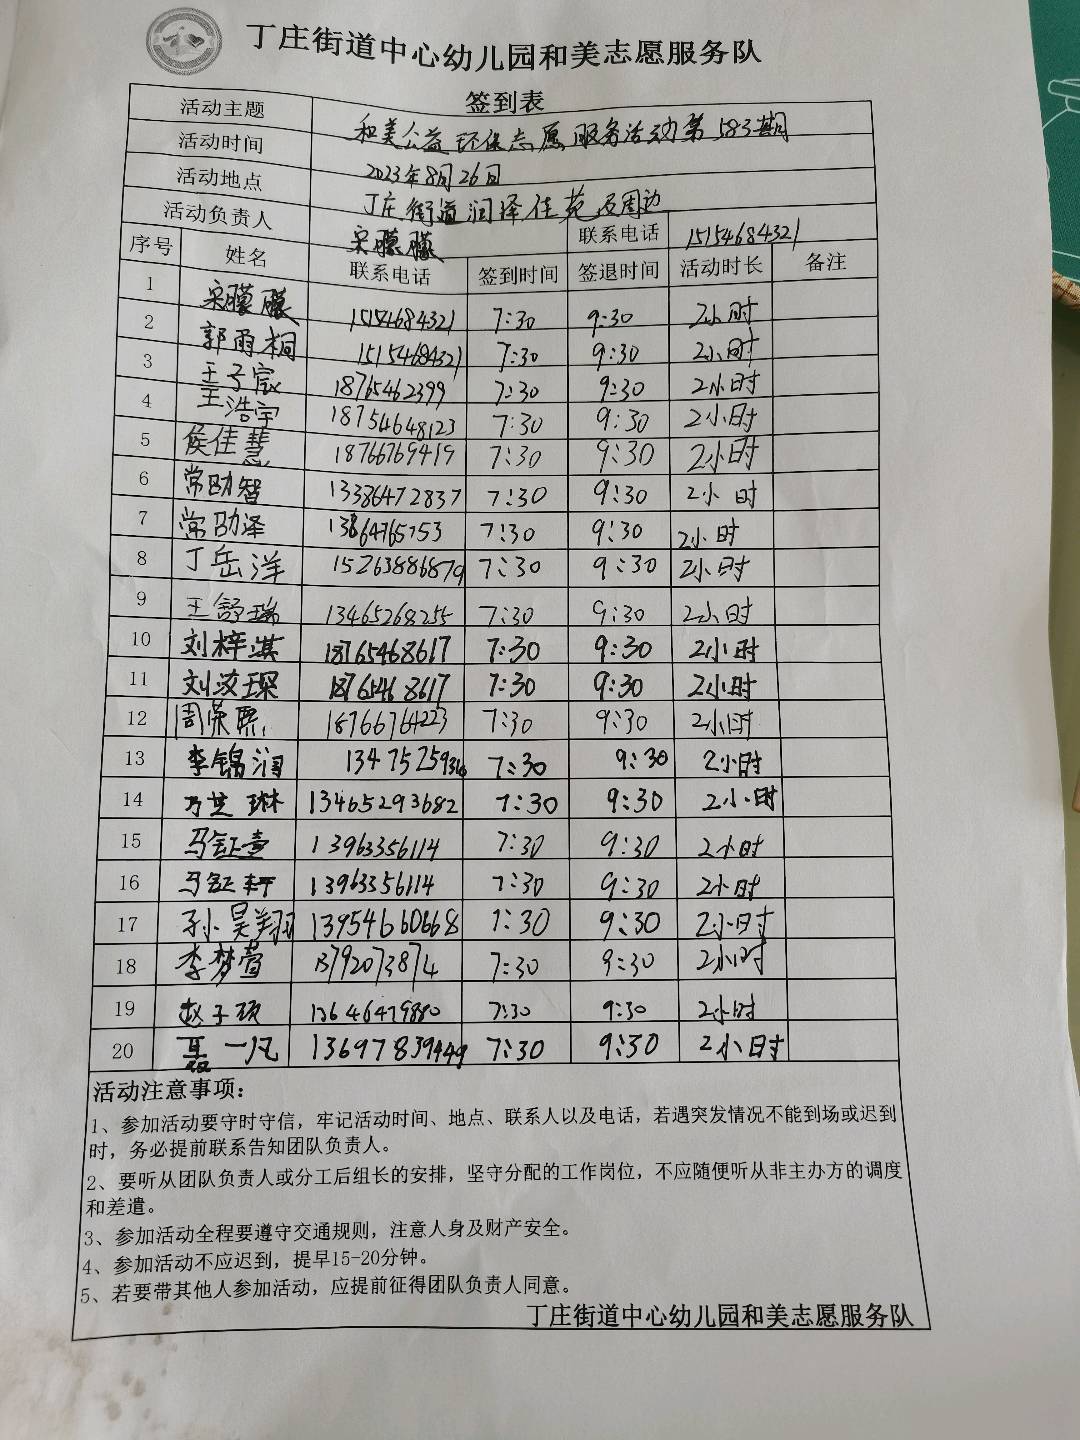 丁庄街道中心幼儿园和美志愿服务队
签到表
活动主题 和美公益环保志愿服务活动第583期
活动时间 2023年8月26日
活动地点 丁庄街道润泽佳苑及周边
活动负责人 宋朦朦 联系电话 15154684321
序号 姓名 联系电话 签到时间 签退时间 活动时长 备注
1 宋朦朦 15154684321 7:30 9:30 2小时
2 郭雨桐 15154684321 7:30 9:30 2小时
3 王子宸 18765462399 7:30 9:30 2小时
4 王浩宇 18754648123 7:30 9:30 2小时
5 侯佳慧 18766769419 7:30 9:30 2小时
6 常劭智 13386472837 7:30 9:30 2小时
7 常劭泽 13864765753 7:30 9:30 2小时
8 丁岳洋 15263886879 7:30 9:30 2小时
9 王舒瑞 13465268255 7:30 9:30 2小时
10 刘梓淇 18765468617 7:30 9:30 2小时
11 刘汝琛 18765468617 7:30 9:30 2小时
12 周荣熙 18766764223 7:30 9:30 2小时
13 李锦润 13475259 7:30 9:30 2小时
14 万芝琳 13465293682 7:30 9:30 2小时
15 马钲壹 13963356114 7:30 9:30 2小时
16 马钲轩 13963356114 7:30 9:30 2小时
17 孙昊翔 13954660668 7:30 9:30 2小时
18 李梦萱 13792073874 7:30 9:30 2小时
19 赵子硕 13646479880 7:30 9:30 2小时
20 聂一凡 13697839449 7:30 9:30 2小时
活动注意事项:
1、参加活动要守时守信，牢记活动时间、地点、联系人以及电话，若遇突发情况不能到场或迟到
时，务必提前联系告知团队负责人。
2、要听从团队负责人或分工后组长的安排，坚守分配的工作岗位，不应随便听从非主办方的调度
和差遣。
3、参加活动全程要遵守交通规则，注意人身及财产安全。
4、参加活动不应迟到，提早15-20分钟。
5、若要带其他人参加活动，应提前征得团队负责人同意。
丁庄街道中心幼儿园和美志愿服务队